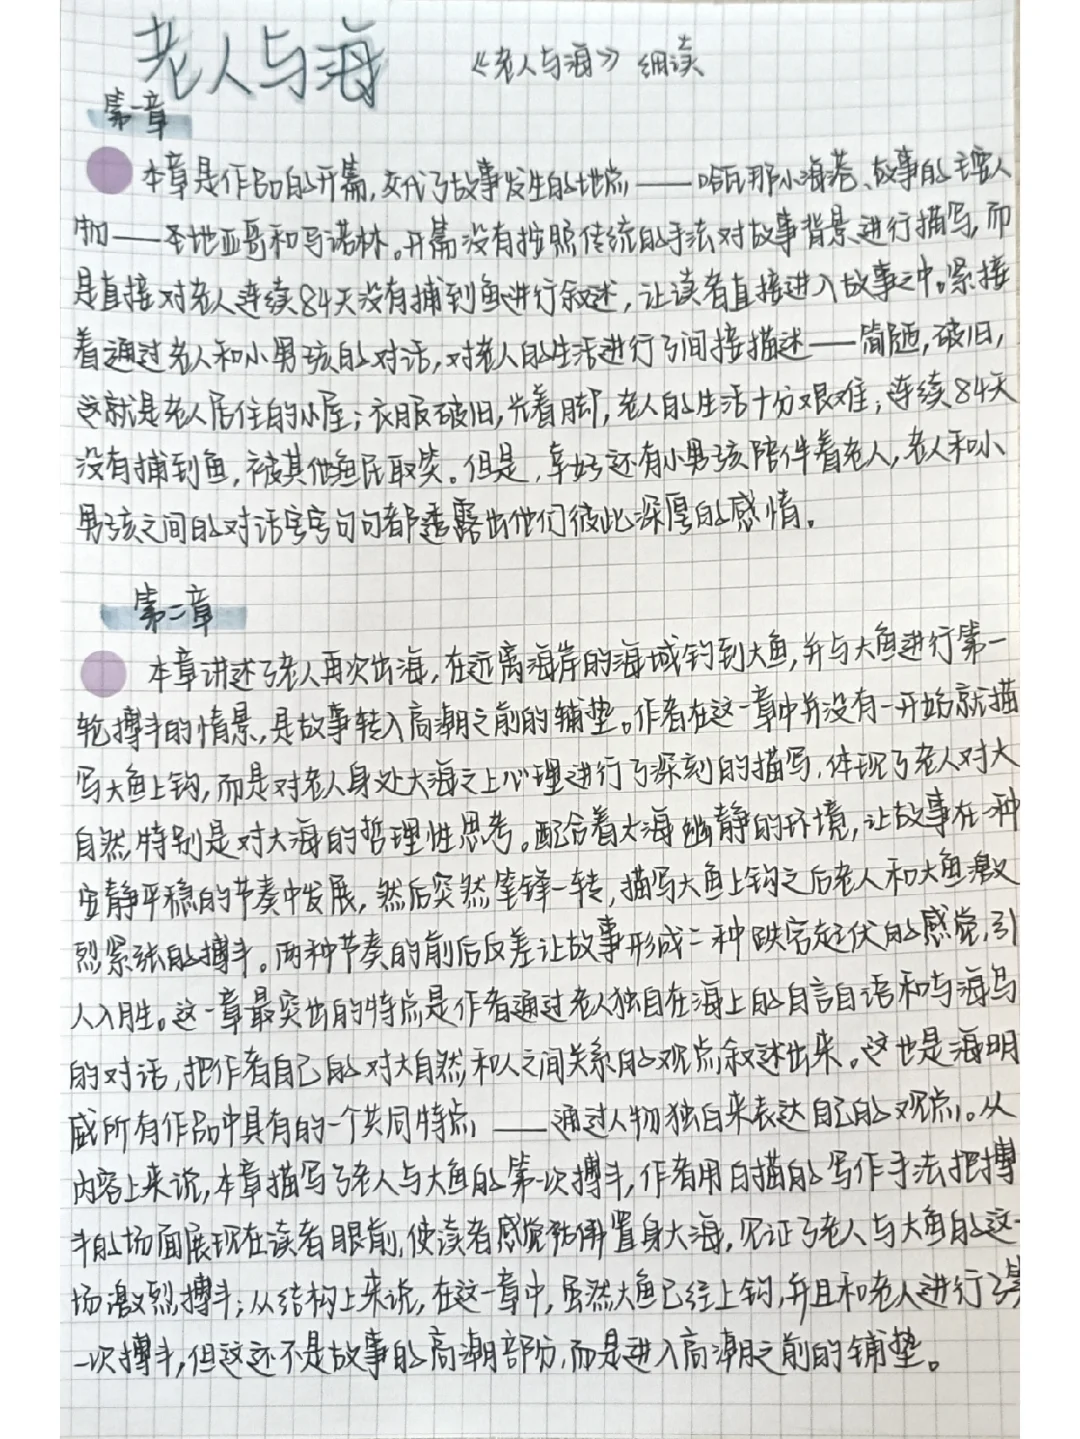 老人与海 《老人与海》细读
第一章
本章是作品的开篇,交代了故事发生的地点——哈瓦那小海港、故事的主要人
物——圣地亚哥和马诺林。开篇没有按照传统的手法对故事背景进行描写,而
是直接对老人连续84天没有捕到鱼进行叙述,让读者直接进入故事之中。紧接
着通过老人和小男孩的对话,对老人的生活进行了间接描述——简陋,破旧,
这就是老人居住的小屋;衣服破旧,光着脚,老人的生活十分艰难;连续84天
没有捕到鱼,被其他渔民取笑。但是,幸好还有小男孩陪伴着老人,老人和小
男孩之间的对话字字句句都透露出他们彼此深厚的感情。
第二章
本章讲述了老人再次出海,在远离海岸的海域钓到大鱼,并与大鱼进行第一
轮搏斗的情景,是故事转入高潮之前的铺垫。作者在这一章中并没有一开始就描
写大鱼上钩,而是对老人身处大海之上心理进行了深刻的描写,体现了老人对大
自然,特别是对大海的哲理性思考。配合着大海幽静的环境,让故事在一种
安静平稳的节奏中发展,然后突然笔锋一转,描写大鱼上钩之后老人和大鱼激
烈紧张的搏斗。两种节奏的前后反差让故事形成一种跌宕起伏的感觉,引
人入胜。这一章最突出的特点是作者通过老人独自在海上的自言自语和与海鸟
的对话,把作者自己的对大自然和人之间关系的观点叙述出来。这也是海明
威所有作品中具有的一个共同特点——通过人物独白来表达自己的观点。从
内容上来说,本章描写了老人与大鱼的第一次搏斗,作者用白描的写作手法把搏
斗的场面展现在读者眼前,使读者感觉仿佛置身大海,见证了老人与大鱼的这一
场激烈搏斗;从结构上来说,在这一章中,虽然大鱼已经上钩,并且和老人进行了第
一次搏斗,但这还不是故事的高潮部分,而是进入高潮之前的铺垫。